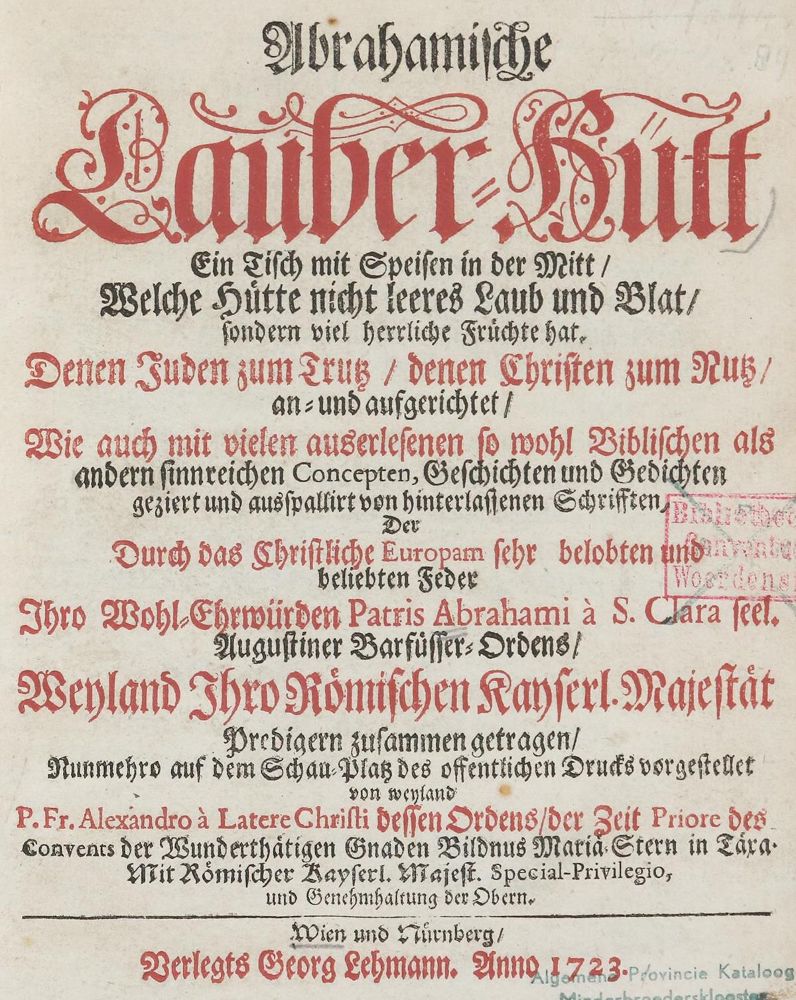 Abrahamische
Lauber-Hütt
Ein Tisch mit Speisen in der Mitt /
Welche Hütte nicht leeres Laub und Blat /
sondern viel herrliche Früchte hat.
Denen Juden zum Trutz / denen Christen zum Nutz /
an- und aufgerichtet /
Wie auch mit vielen auserlesenen so wohl Biblischen als
andern sinnreichen Concepten, Geschichten und Gedichten
geziert und ausspallirt von hinterlassenen Schrifften,
Der
Durch das Christliche Europam sehr belobten und
beliebten Feder
Ihro Wohl-Ehrwürden Patris Abrahami à S. Clara seel.
Augustiner Barfüsser-Ordens /
Weyland Ihro Römischen Kayserl. Majestät
Predigern zusammen getragen /
Nunmehro auf dem Schau-Platz des offentlichen Drucks vorgestellet
von weyland
P. Fr. Alexandro à Latere Christi dessen Ordens / der Zeit Priore des
Convents der Wunderthätigen Gnaden Bildnus Mariä-Stern in Täxa.
Mit Römischer Kayserl. Majest. Special-Privilegio,
und Genehmhaltung der Obern.
Wien und Nürnberg /
Verlegts Georg Lehmann. Anno 1723.
Algemene Provincie Kataloog
Minderbroedersklooster